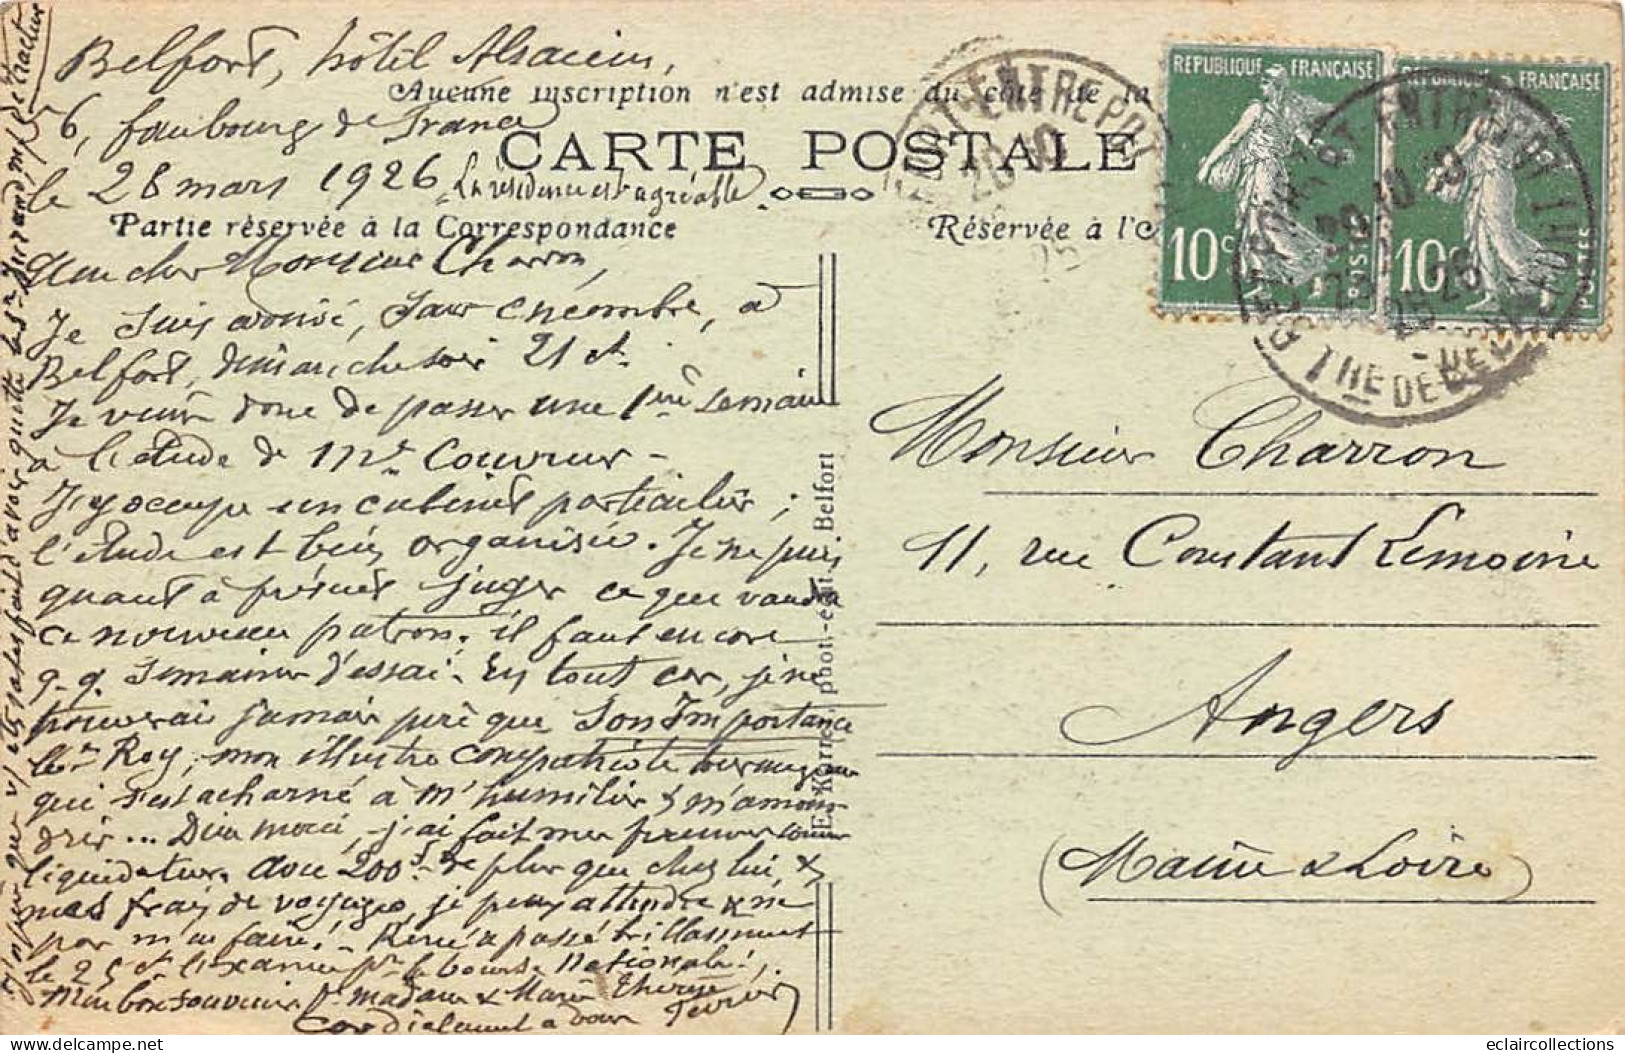 Belfort, hôtel Alsacien,
Aucune inscription n'est admise du côté de la
6, faubourg de France
CARTE POSTALE
le 28 mars 1926 La résidence est agréable
Partie réservée à la Correspondance
Réservée à l'
Mon cher Monsieur Charron,
Je suis arrivé, sans encombre, à
Belfort, dimanche soir 21 ct.
Je viens donc de passer une 1ère semaine
à l'étude de Me Couvreur -
J'y occupe un cabinet particulier ;
l'étude est bien organisée. Je ne puis
quant à présent juger ce que vaudra
ce nouveau patron. il faut encore
q.q. semaines d'essai. En tout cas, je ne
trouverai jamais pire que Son Importance
le Roy, mon illustre compatriote
qui s'est acharné à m'humilier & m'amoin-
drir... Dieu merci, j'ai fait mes
liquidateur. avec 200 f de plus que chez lui, &
mes frais de voyages, je peux attendre & ne
pas m'en faire! - René a passé brillamment
le 25 ct l'examen pr la bourse Nationale!,
Mon bon souvenir pr madame & Marie Thérèse
Cordialement à vous
J'espère que v/ êtes satisfait d'avoir quitté le Sr Durand
REPUBLIQUE FRANÇAISE
10c
POSTES
REPUBLIQUE FRANÇAISE
10c
POSTES
Monsieur Charron
11, rue Constant Lemoine
Angers
(Maine & Loire)
phot.-édit. Belfort
eclaircollections